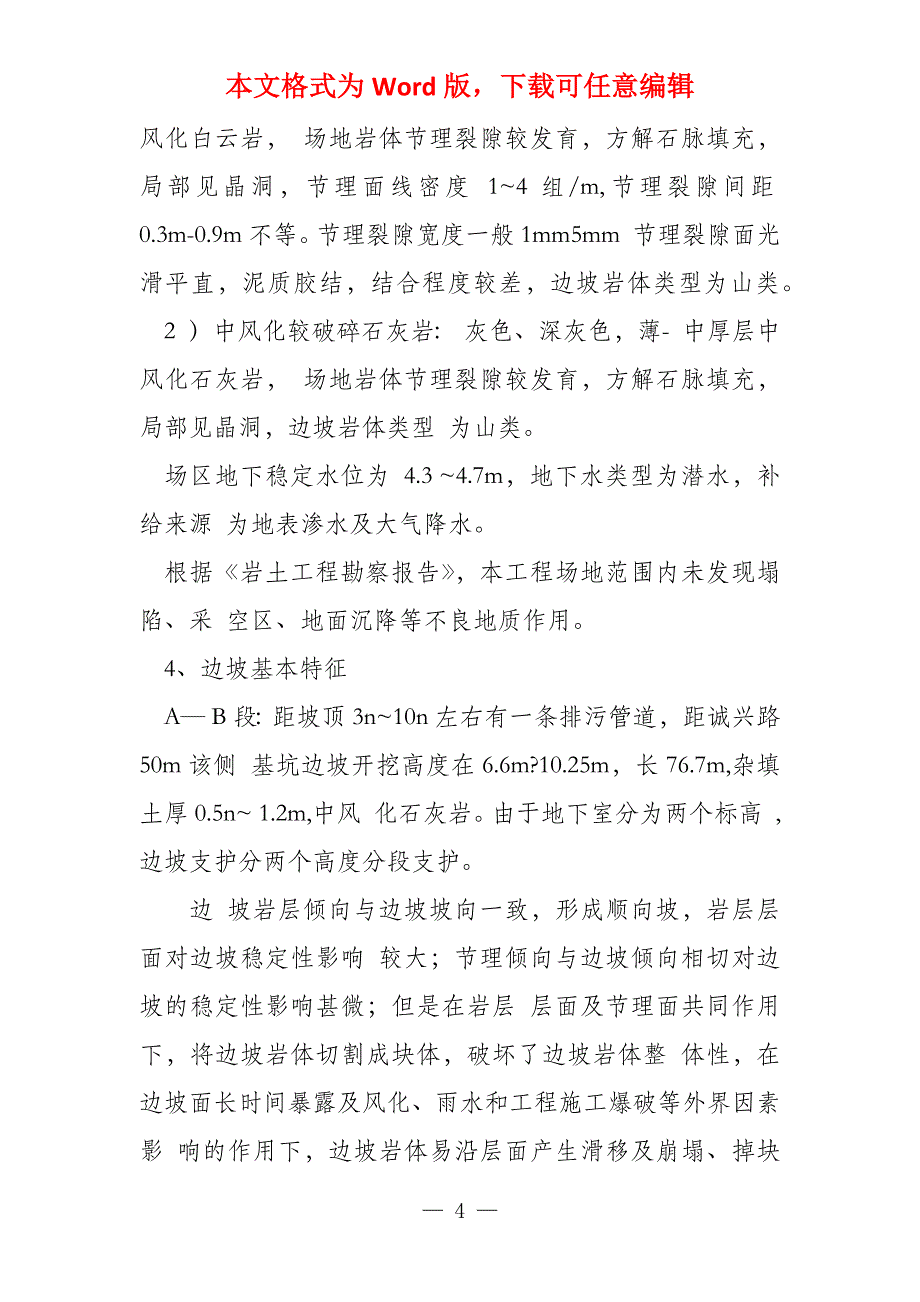 本文格式为 Word 版，下载可任意编辑
风化白云岩， 场地岩体节理裂隙较发育，方解石脉填充，
局部见晶洞，节理面线密度 1~4 组/m,节理裂隙间距
0.3m-0.9m 不等。节理裂隙宽度一般 1mm5mm 节理裂隙面光
滑平直，泥质胶结，结合程度较差，边坡岩体类型为山类。
2 ）中风化较破碎石灰岩： 灰色、深灰色，薄- 中厚层中
风化石灰岩， 场地岩体节理裂隙较发育，方解石脉填充，
局部见晶洞，边坡岩体类型 为山类。
场区地下稳定水位为 4.3 ~4.7m，地下水类型为潜水，补
给来源 为地表渗水及大气降水。
根据《岩土工程勘察报告》，本工程场地范围内未发现塌
陷、采 空区、地面沉降等不良地质作用。
4、边坡基本特征
A— B 段：距坡顶 3n~10n 左右有一条排污管道，距诚兴路
50m 该侧 基坑边坡开挖高度在 6.6m?10.25m，长 76.7m,杂填
土厚 0.5n~ 1.2m,中风 化石灰岩。由于地下室分为两个标高 ，
边坡支护分两个高度分段支护。
边 坡岩层倾向与边坡坡向一致，形成顺向坡，岩层层
面对边坡稳定性影响 较大；节理倾向与边坡倾向相切对边
坡的稳定性影响甚微；但是在岩层 层面及节理面共同作用
下，将边坡岩体切割成块体，破坏了边坡岩体整 体性，在
边坡面长时间暴露及风化、雨水和工程施工爆破等外界因素
影 响的作用下，边坡岩体易沿层面产生滑移及崩塌、掉块
— 4 —